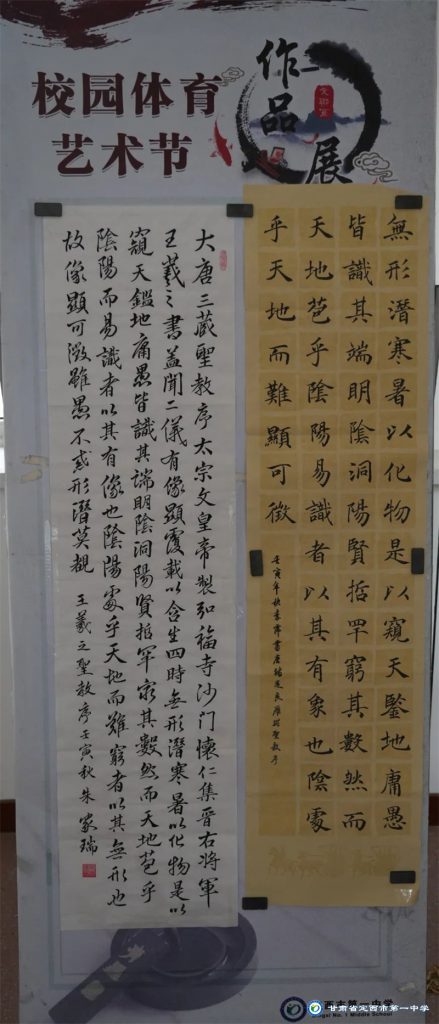 校园体育
艺术节
作品展
無形潛寒暑以化物是以窺天鑒地庸愚
皆識其端明陰洞陽賢哲罕窮其數然而
天地苞乎陰陽易識者以其有象也陰處
乎天地而難顯可徵
壬寅年秋書唐褚遂良雁塔聖教序
大唐三藏聖教序太宗文皇帝製弘福寺沙门懷仁集晉右將軍
王羲之書蓋聞二儀有像顯覆載以含生四時無形潛寒暑以化物是以
窺天鑑地庸愚皆識其端明陰洞陽賢哲罕窮其數然而天地苞乎
陰陽而易識者以其有像也陰陽處乎天地而難窮者以其無形也
故像顯可徵雖愚不惑形潛莫覩
王羲之聖教序壬寅秋朱家瑞
西市第一中学
No. 1 Middle School
甘肃省定西市第一中学